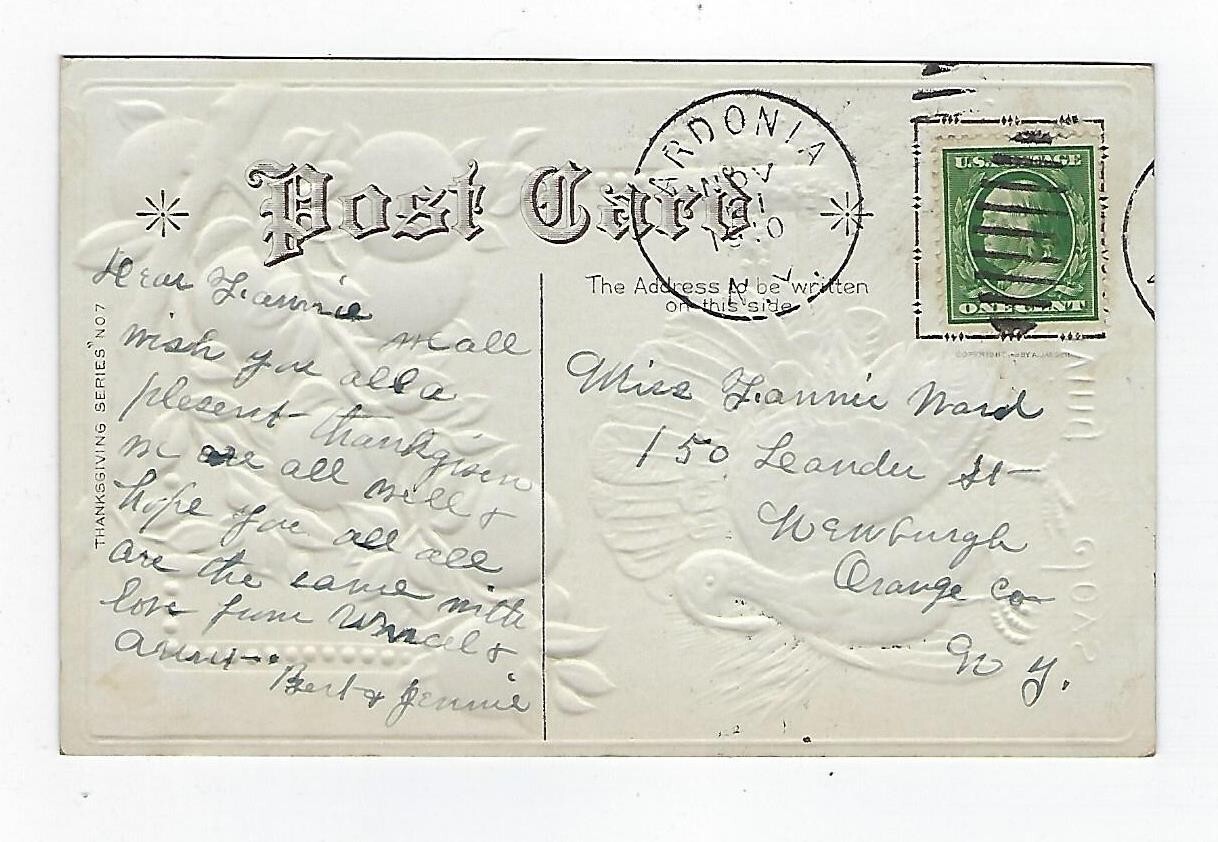 Post Card
ARDONIA
NOV
21
1910
N.Y.
U.S. POSTAGE
ONE CENT
The Address to be written
on this side
THANKSGIVING SERIES" NO 7
Dear Fannie
we all
wish you all a
plesent thanksgiven
we are all well &
hope you all all
are the same with
love from Uncal &
Aunt
Bert & Jennie
Miss Fannie Ward
150 Leander St
Newburgh
Orange Co
N Y.